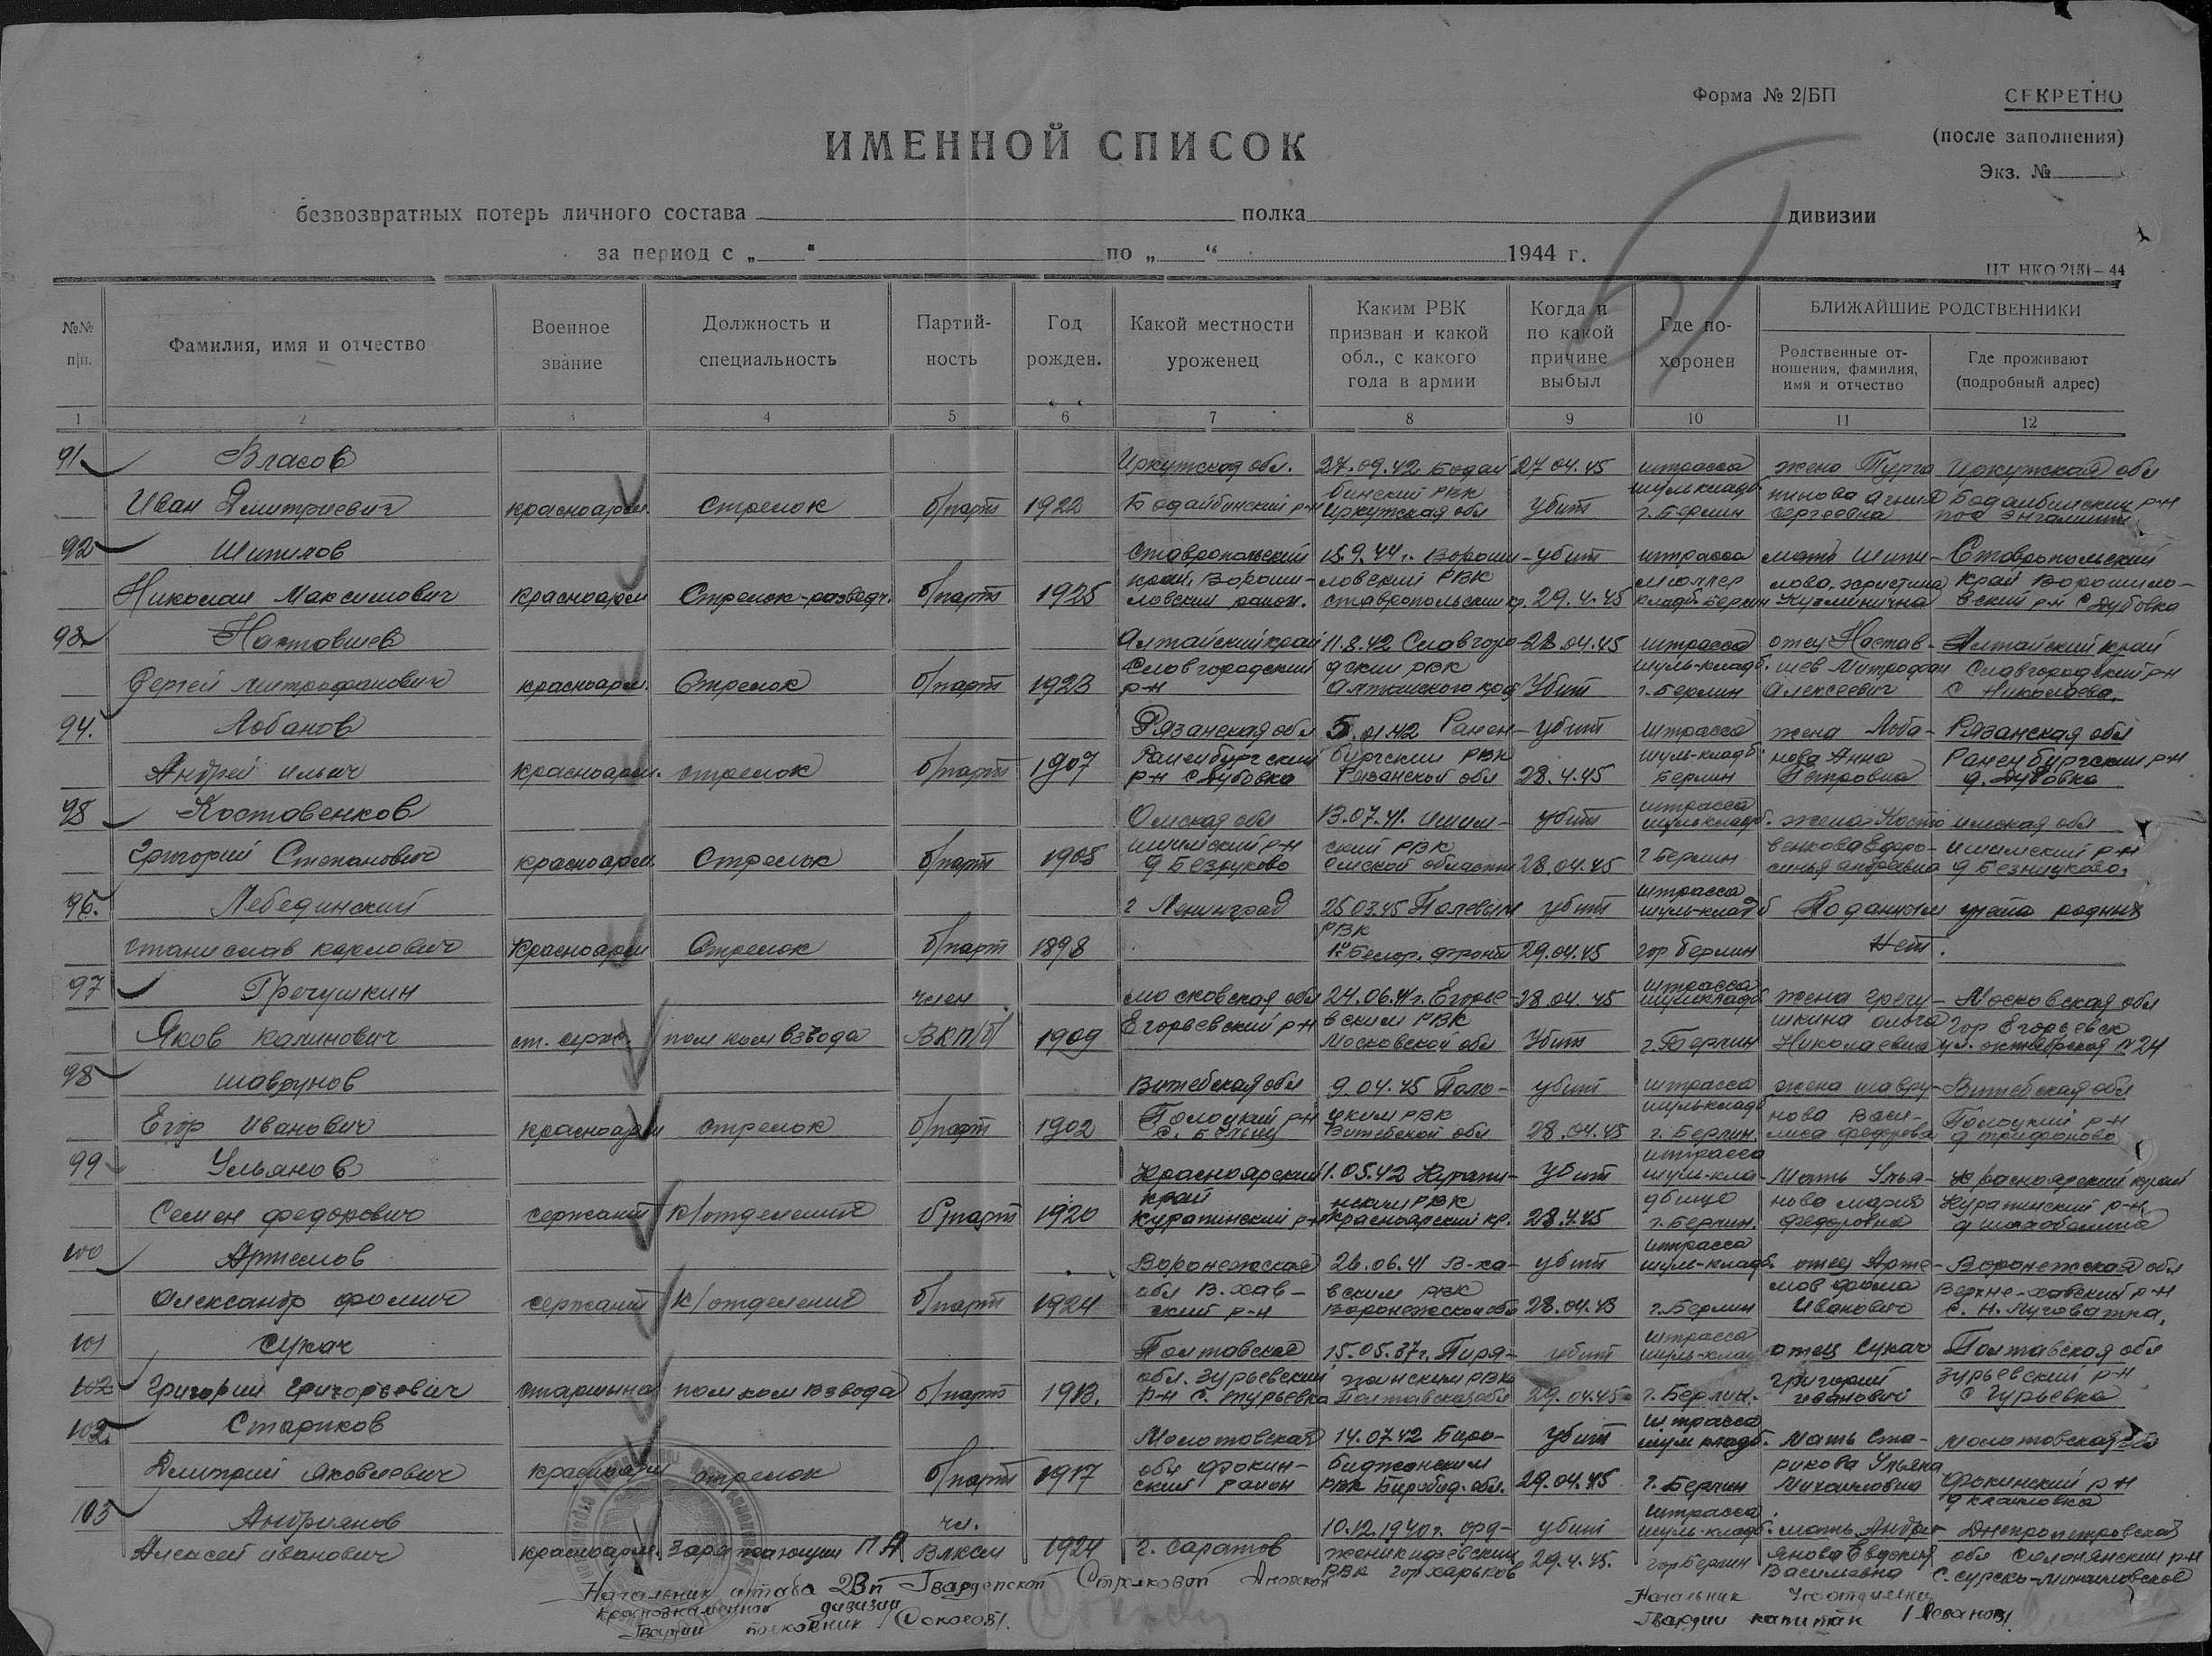 Форма № 2/БП
СЕКРЕТНО
(после заполнения)
Экз. №
ИМЕННОЙ СПИСОК
безвозвратных потерь личного состава полка дивизии
за период с „ “ по „ “ 1944 г.
ЦТ НКО 2151—44
№№ п/п.
Фамилия, имя и отчество
Военное звание
Должность и специальность
Партийность
Год рожден.
Какой местности уроженец
Каким РВК призван и какой обл., с какого года в армии
Когда и по какой причине выбыл
Где похоронен
БЛИЖАЙШИЕ РОДСТВЕННИКИ
Родственные отношения, фамилия, имя и отчество
Где проживают (подробный адрес)
1 2 3 4 5 6 7 8 9 10 11 12
91 Власов Иркутская обл. 27.09.42 Бодай 27.04.45 штрасса жена Иркутская обл
Иван Дмитриевич красноарм. Стрелок б/парт 1922 Бодайбинский р-н бинский РВК Иркутская обл убит шулькладб. г. Берлин Сергеевна Бодайбинский р-н
92 Шипилов Ставропольский 15.9.44 г. Вороши- убит штрасса мать Шипи- Ставропольский
Николай Максимович красноарм Стрелок-разведч. б/парт 1925 край, Вороши-ловский район. ловский РВК ставропольский кр. 29.4.45 кладб. Берлин лова Христина Кузьминична край Ворошило-вский р-н с Дубовка
93 Наставшев Алтайский край 11.8.42 Славгоро- 28.04.45 штрасса отец Настав- Алтайский край
Сергей Митрофанович красноарм. Стрелок б/парт 1923 Славгородский р-н дским РВК Алтайского края Убит шуль-кладб. г. Берлин шев Митрофан Алексеевич Славгородский р-н с Николаевка,
94. Лобанов Рязанская обл 5.01.42 Ранен- убит штрасса жена Лоба- Рязанская обл
Андрей Ильич красноарм. стрелок б/парт 1907 Раненбургский р-н с Дубовка бургским РВК Рязанской обл 28.4.45 шуль-кладб. Берлин нова Анна Петровна Раненбургский р-н д. Дубовка
95 Костовенков Омская обл 13.07.41. Ишим- убит штрасса шулькладб. жена Косто Омская обл
Григорий Степанович красноарм. Стрелок б/парт 1905 Ишимский р-н д Безруково ский РВК Омской области 28.04.45 г Берлин венкова Ефро-синья Андреевна Ишимский р-н
96. Лебединский г Ленинград 25.03.45 Полевым убит штрасса шуль-кладб По данным учета родных
Станислав Карлович Красноарм Стрелок б/парт 1898 РВК 1й Белор. фронт 29.04.45 гор Берлин Нет.
97 Гречушкин член Московская обл 24.06.41 г. Егорье- 28.04.45 штрасса шулькладб жена Гречу- Московская обл
Яков Калинович ст. серж. пом ком взвода ВКП/б/ 1909 Егорьевский р-н вским РВК Московской обл Убит г. Берлин шкина Ольга Николаевна гор Егорьевск ул. Октябрьская № 24
98 Шаврунов Витебская обл 9.04.45 Поло- убит штрасса жена Шавру- Витебская обл
Егор Иванович красноарм стрелок б/парт 1902 Полоцкий р-н цким РВК Витебской обл 28.04.45 шулькладб г. Берлин. нова Васи-лиса Федоровна Полоцкий р-н д Трифоново
99 Ульянов Красноярский 1.05.42 Курагин- убит штрасса шуль-кла- Мать Улья- Красноярский край
Семен Федорович сержант к/отделения б/парт 1920 край Курагинский р-н ским РВК Красноярский кр. 28.4.45 дбище г. Берлин. нова Мария Федоровна Курагинский р-н
100 Артемов Воронежская 26.06.41 В-ха- убит штрасса шуль-кладб. отец Арте- Воронежская обл
Александр Фомич сержант к/отделения б/парт 1924 обл В. Хав-ский р-н вским РВК Воронежской обл 28.04.45 г. Берлин мов Фома Иванович Верхне-Хавский р-н
101 Сукач Полтавская 15.05.37 г. Пиря- убит штрасса шуль-клад отец Сукач Полтавская обл
102 Григорий Григорьевич старшина пом ком взвода б/парт 1913. обл. тинским РВК Полтавская обл 29.04.45 г. Берлин. Григорий Иванович с Гурьевка
102. Стариков Молотовская 14.07.42 Биро- убит штрасса шулькладб. Мать Ста- Молотовская обл
Дмитрий Яковлевич красноарм стрелок б/парт 1917 обл Фокин-ский район биджанским РВК Биробид. обл. 29.04.45 г. Берлин рикова Ульяна Михайловна Фокинский р-н
103 Андриянов чл. 10.12.1940 г. Орд- убит штрасса шуль-кладб. мать Андри- Днепропетровская
Алексей Иванович красноарм. Заряжающий ПА ВЛКСМ 1924 г. Саратов жоникидзевским РВК гор Харьков 29.4.45. гор Берлин янова Евдокия Васильевна обл Солонянский р-н с. Сурско-Михайловское
Начальник штаба 23й Гвардейской Стрелковой Дновской
Краснознаменной дивизии
Гвардии полковник /Соколов/.
Начальник 4го отделения
Гвардии капитан